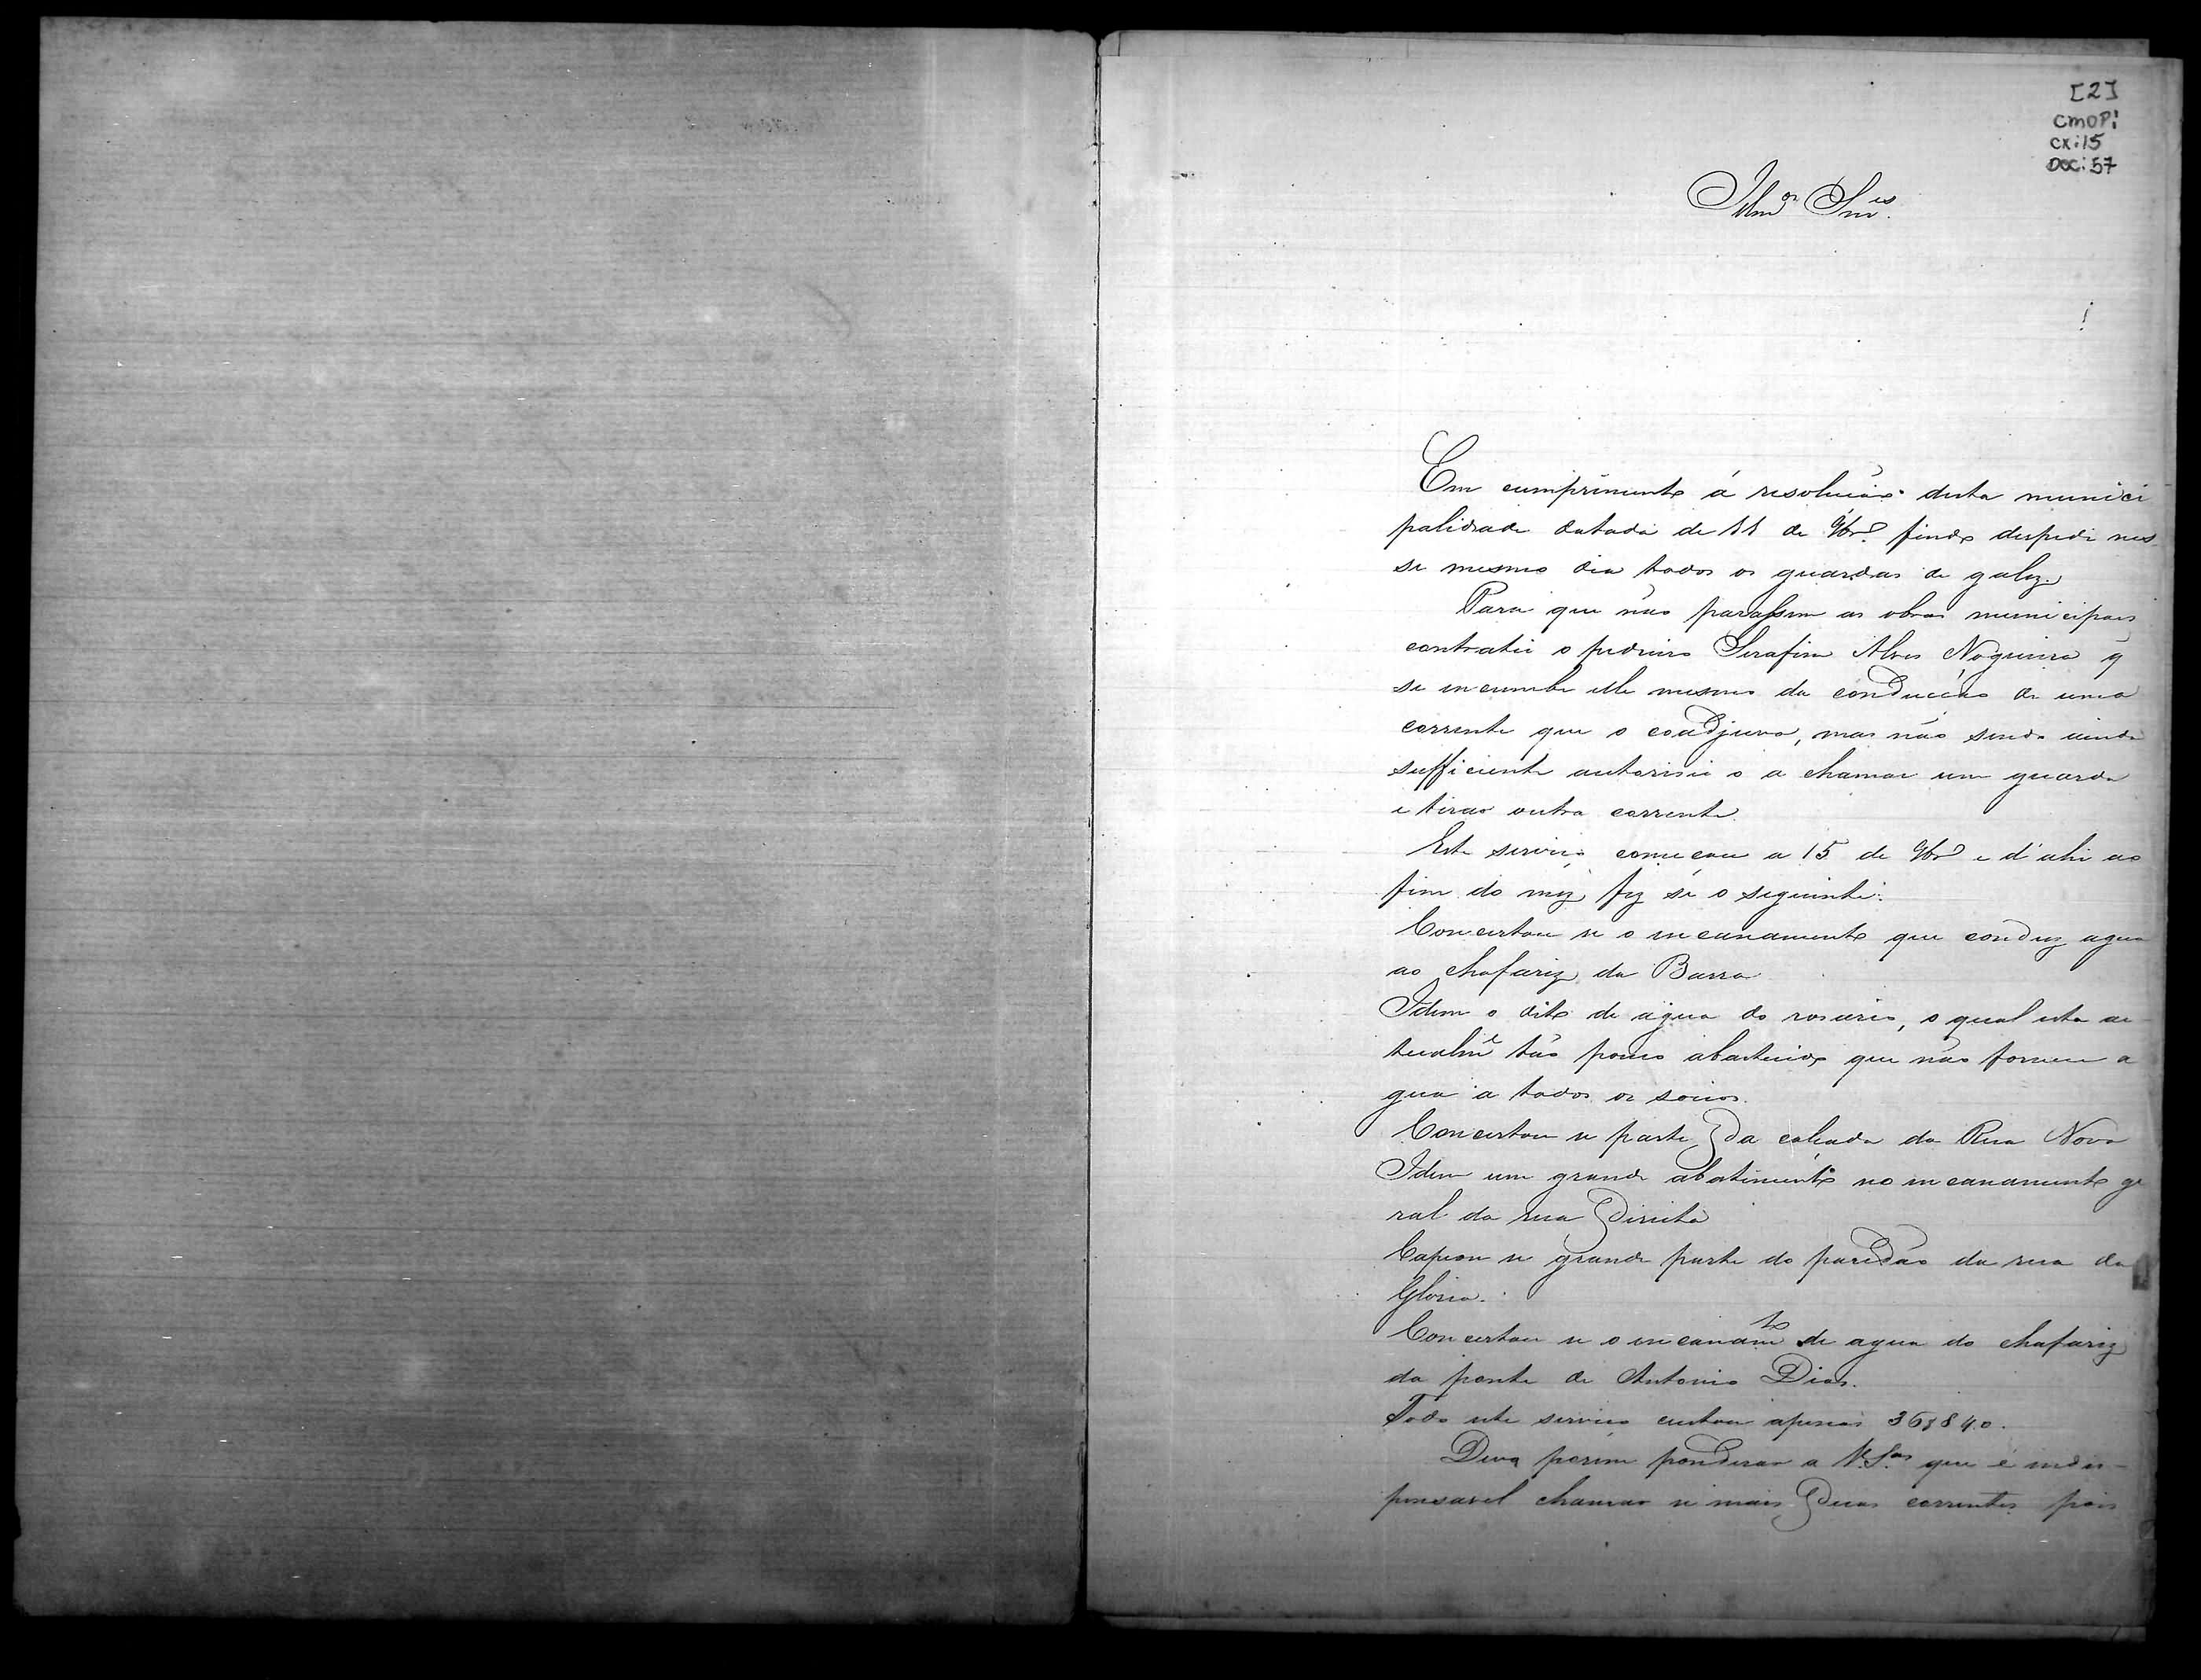 [2]
CMOP:
CX:15
DOC:57
Illm.os Snr.es
Em cumprimento á resolução desta munici
palidade datada de 11 de 9br.o findo despedi nes
se mesmo dia todos os guardas de galez.
Para que não parassem as obras municipaes
contratei o pedreiro Serafim Alves Nogueira q
se incumbe elle mesmo da conducção de uma
corrente que o coadjuva, mas não sendo ainda
sufficiente autorisei o a chamar um guarda
e tirar outra corrente.
Este serviço começou a 15 de 9br.o e d'ahi ao
fim do mez fez se o seguinte:
Concertou se o encanamento que conduz agua
ao chafariz da Barra
Idem o dito de agua do rosario, o qual esta ac
tualm.e tão pouco abastecido que não fornece a
gua a todos os socios.
Concertou se parte da calçada da Rua Nova
Idem um grande abatimento no encanamento ge
ral da rua Direita
Capeou se grande parte do paredão da rua da
Gloria.
Concertou se o encanam.to de agua do chafariz
da ponte de Antonio Dias.
Todo este serviço custou apenas 36$840.
Devo porem ponderar a V.S.as que é indis-
pensavel chamar se mais duas correntes pois